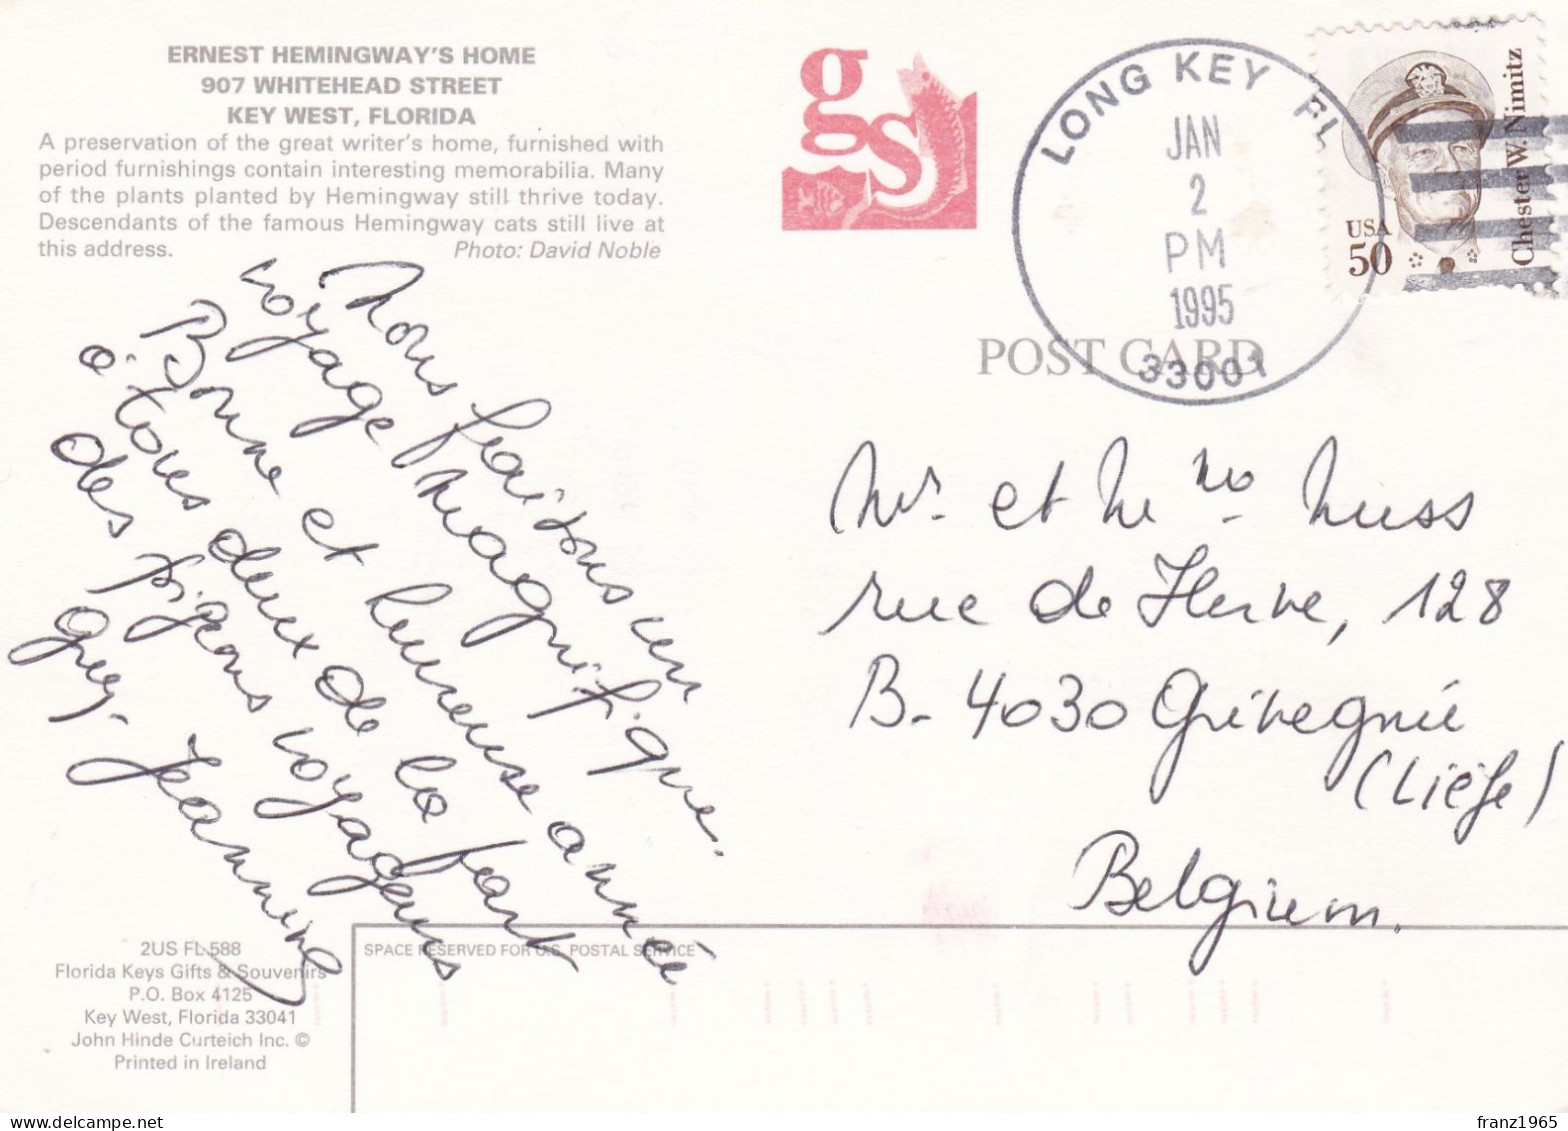 ERNEST HEMINGWAY'S HOME
907 WHITEHEAD STREET
KEY WEST, FLORIDA
A preservation of the great writer's home, furnished with
period furnishings contain interesting memorabilia. Many
of the plants planted by Hemingway still thrive today.
Descendants of the famous Hemingway cats still live at
this address. Photo: David Noble
Nous faisons un
voyage magnifique.
Bonne et heureuse année
à tous deux de la part
des pigeons voyageurs
Guy. Jeannine
2US FL 588
Florida Keys Gifts & Souvenirs
P.O. Box 4125
Key West, Florida 33041
John Hinde Curteich Inc. ©
Printed in Ireland
gs
LONG KEY FL
JAN
2
PM
1995
33001
USA
50
Chester W. Nimitz
POST CARD
Mr. et Mme Nuss
rue de Herve, 128
B-4030 Grivegnée
(Liège)
Belgium.
SPACE RESERVED FOR U.S. POSTAL SERVICE
franz1965